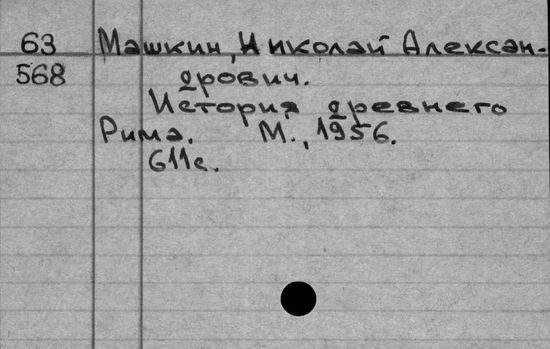 63 Машкин, Николай Алексан-
568 дрович.
История древнего
Рима. М., 1956.
611с.